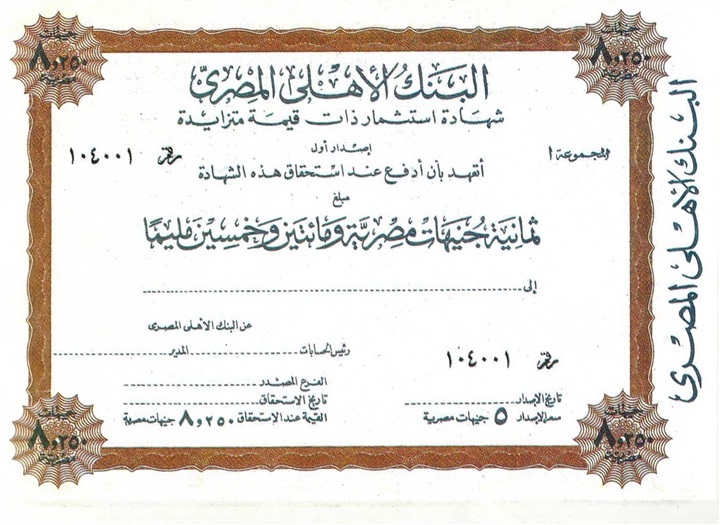 جنيهات
٨٫٢٥٠
مصرية
جنيهات
٨٫٢٥٠
مصرية
البنك الأهلى المصرى
شهادة استثمار ذات قيمة متزايدة
إصدار أول
المجموعة ١
رقم ١٠٤٠٠١
أتعهد بأن أدفع عند استحقاق هذه الشهادة
مبلغ
ثمانية جنيهات مصرية ومائتين وخمسين مليمًا
إلى
عن البنك الأهلى المصرى
رئيس الحسابات المدير
رقم ١٠٤٠٠١
الفرع المصدر
تاريخ الإصدار
تاريخ الاستحقاق
سعر الإصدار ٥ جنيهات مصرية
القيمة عند الإستحقاق ٨٫٢٥٠ جنيهات مصرية
جنيهات
٨٫٢٥٠
مصرية
جنيهات
٨٫٢٥٠
مصرية
البنك الأهلى المصرى